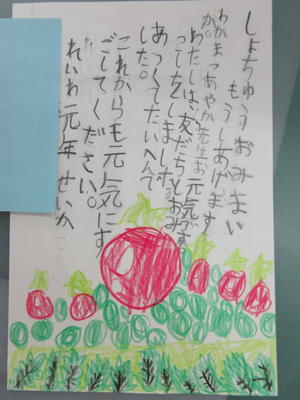 しょちゅうおみまい
もうしあげます
わかまつあやか先生お元気です
か。
わたしは、友だちとおみ
ってをしました。
あつくてたいへんで
した。
これからも元気にす
ごしてください。
れいわ元年 せいか